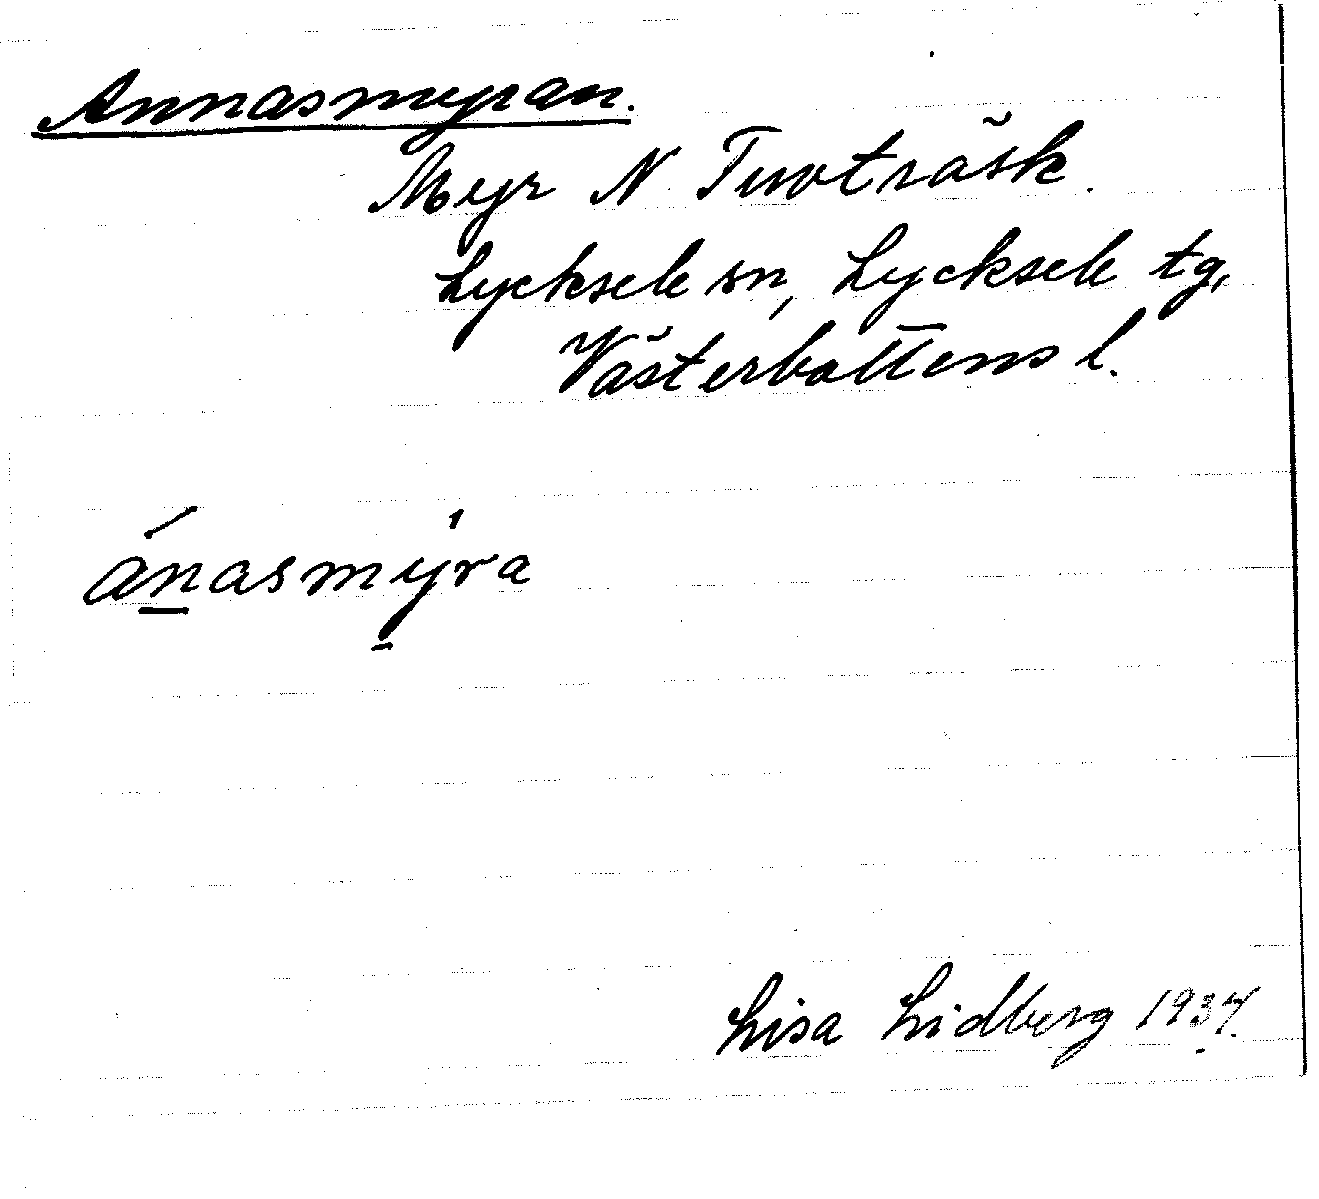 Annasmyran.
Myr N Tuvträsk.
Lycksele sn, Lycksele tg,
Västerbottens l.
ánasmýra
Lisa Lidberg 1934.